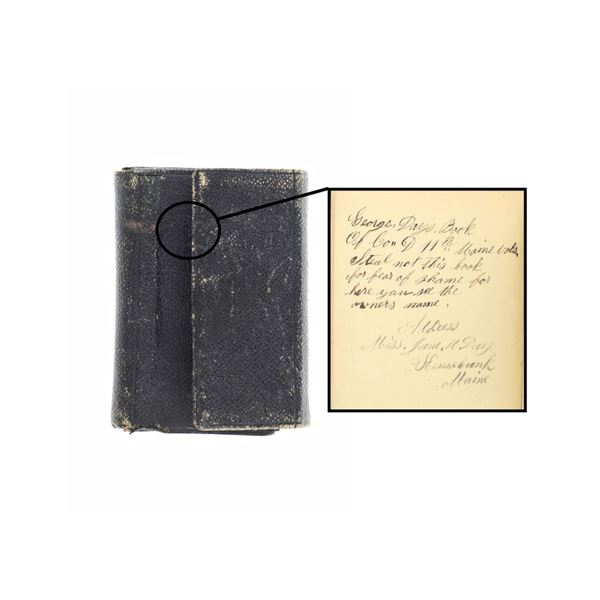 George, Days, Book
Of Co. D 11th Maine vols.
Steal not this book
for fear of shame for
here you see the
owners name.
Address
Miss, Jane M Day
Kennebunk
Maine